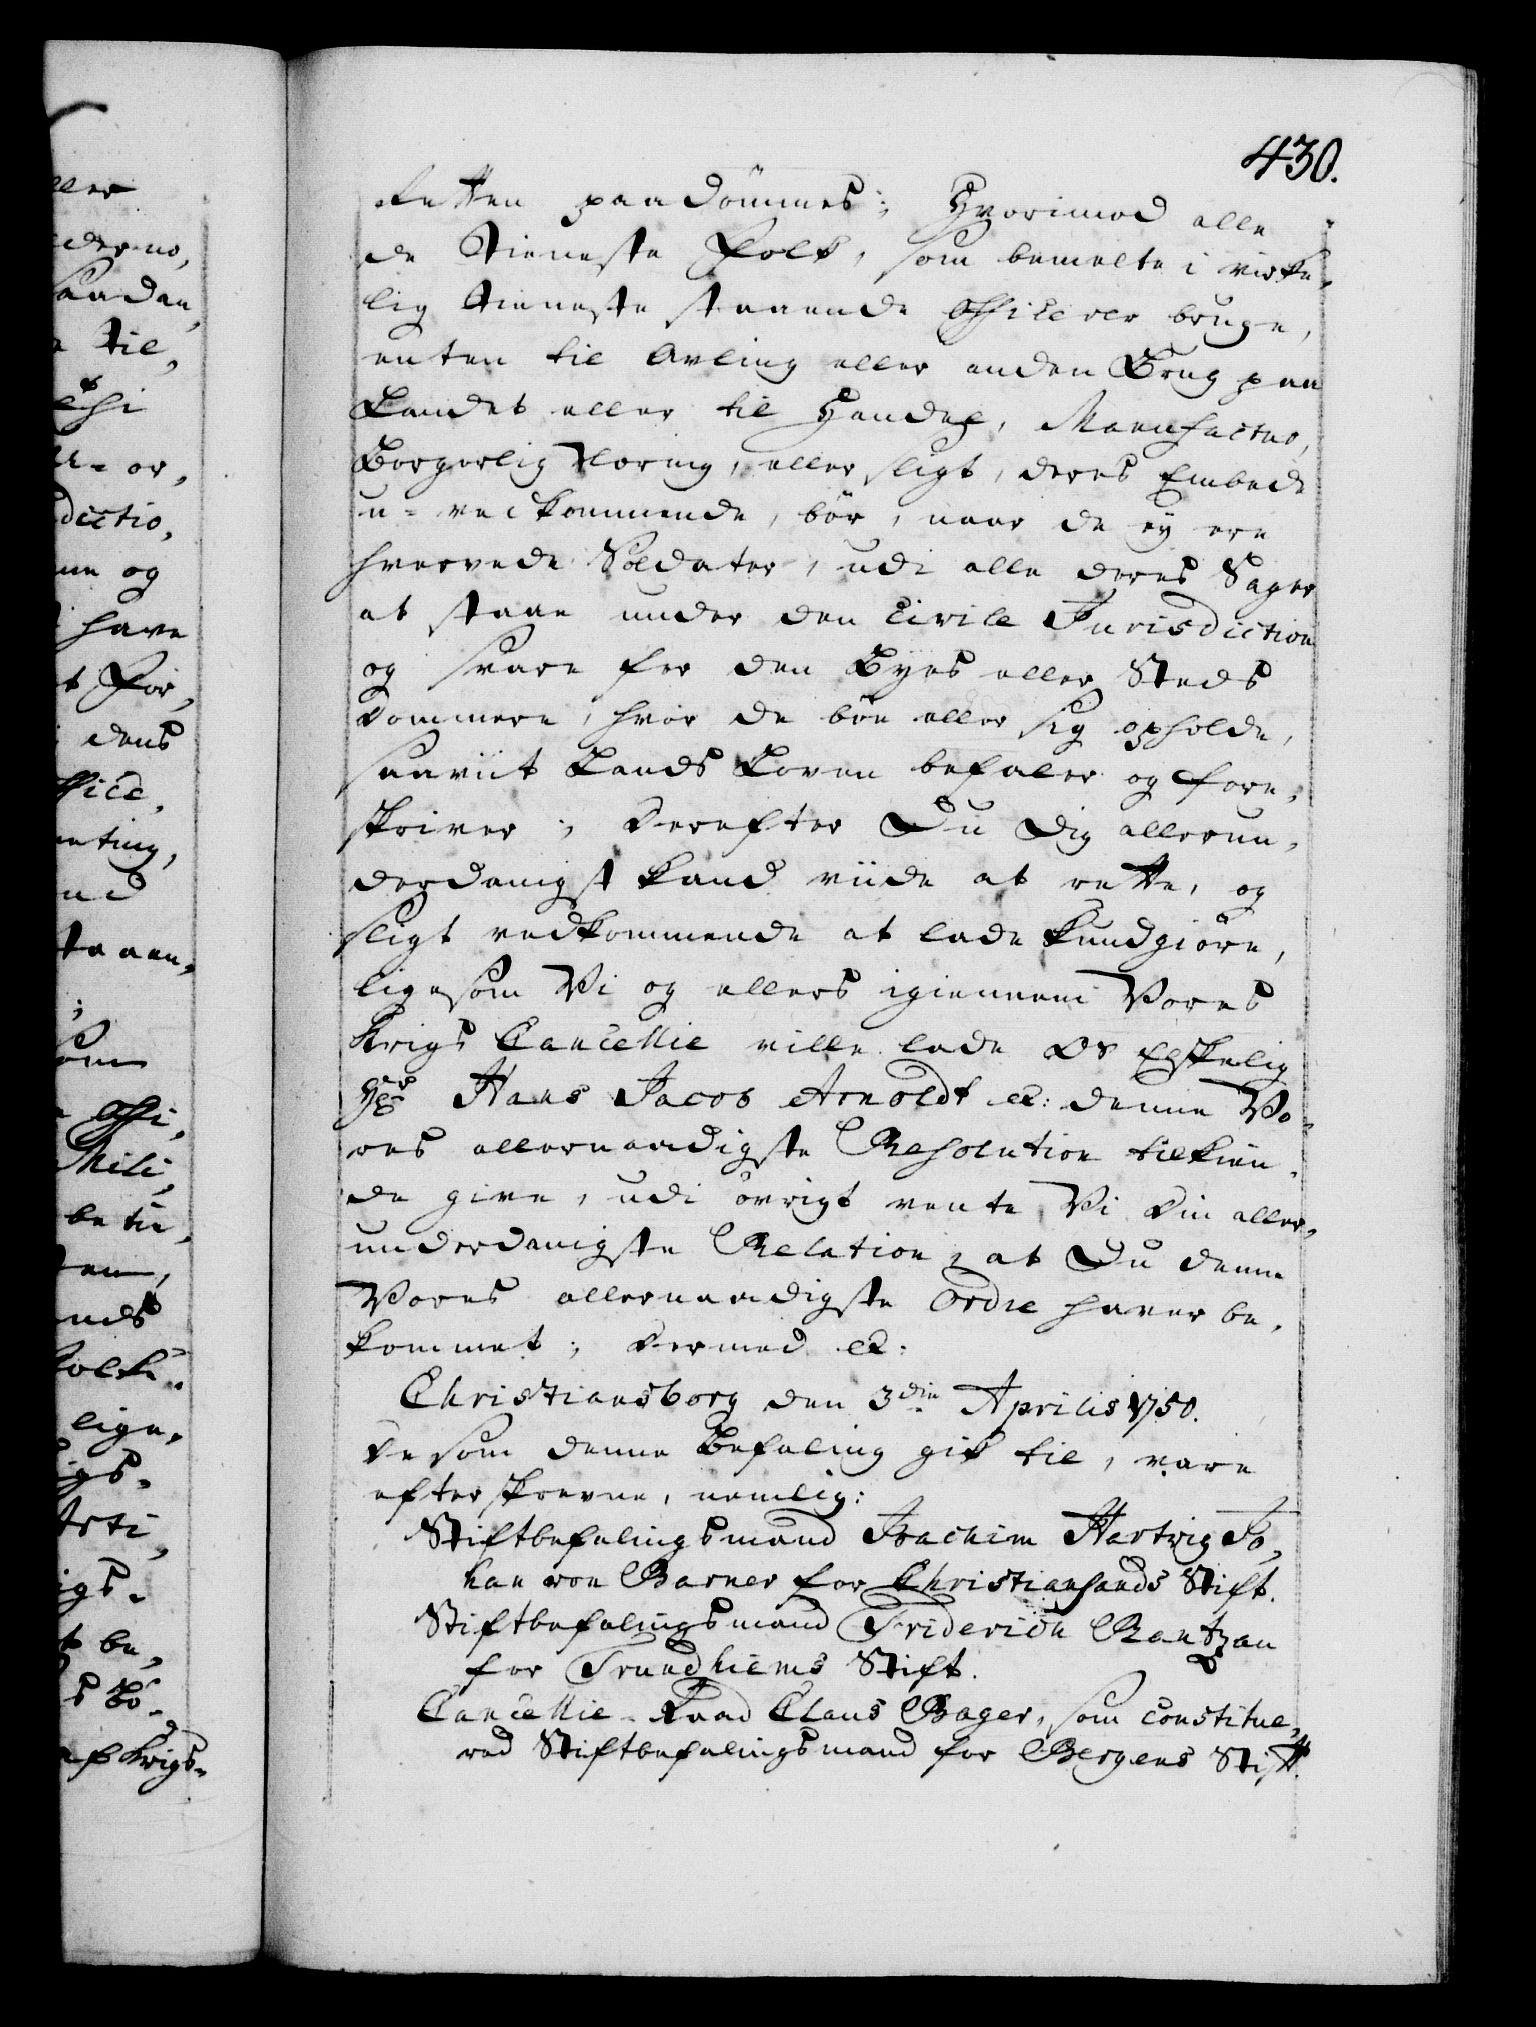 430.
Retten paadömmes; Hvorimod alle
de Tieneste Folk, som bemelte i virke,
lig Tieneste staaende Officerer bruge,
enten til Avling eller anden Brug paa
Landet eller til Handel, Manufactur,
Borgerlig Næring, eller sligt, deres Embede
u-vedkommende, bör, naar de ey ere
hvervede Soldater, udi alle deres Sager
at staae under den Civile Jurisdiction
og svare for den Byes eller Steds
Dommere, hvor de böe eller sig opholde,
saaviit Lands Loven befaler og fore,
skriver; Derefter Du Dig allerun,
derdanigst kand viide at rette, og
sligt vedkommende at lade kundgiöre,
ligesom Vi og ellers igiennem Vores
Krigs Cancellie ville lade Os Elskelig
Hr Hans Jacob Arnoldt etc: denne Vo-
res allernaadigste Resolution tilkien,
de give, udi övrigt vente Vi Din aller,
underdanigste Relation, at Du denne
Vores allernaadigste Ordre haver be,
kommet; Dermed etc:
Christiansborg den 3die Aprilis 1750.
De som denne Befaling gik til, vare
efterskrevne, nemlig:
Stiftbefalingsmand Joachim Hartvig Jo,
han von Barner for Christiansands Stift.
Stiftbefalingsmand Friderich Rantzau
for Trundhiems Stift.
Cancellie-Raad Claus Bager, som constitue,
red Stiftbefalingsmand for Bergens Stift.
ller
saadan,
Til,
dictio,
og
have
For,
dens
office,
som
Offi,
Mili,
be
lige,
be,
af Krigs-